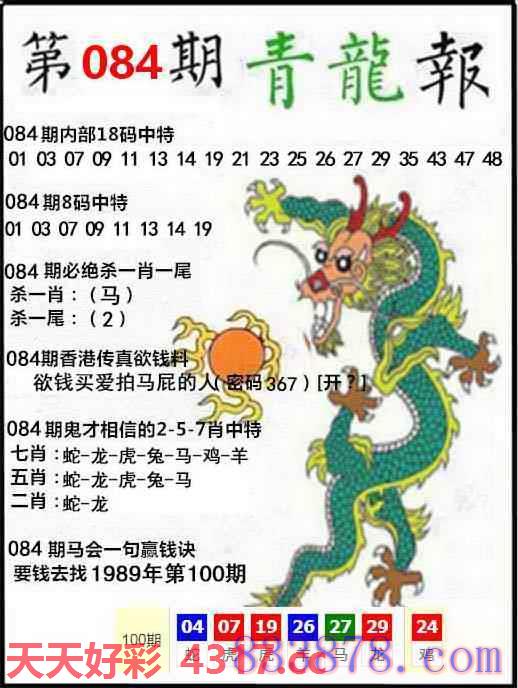 第084期青龍報
084期内部18码中特
01 03 07 09 11 13 14 19 21 23 25 26 27 29 35 43 47 48
084期8码中特
01 03 07 09 11 13 14 19
084期必绝杀一肖一尾
杀一肖：（马）
杀一尾：（2）
084期香港传真欲钱料
欲钱买爱拍马屁的人(密码367)[开?]
084期鬼才相信的2-5-7肖中特
七肖：蛇-龙-虎-兔-马-鸡-羊
五肖：蛇-龙-虎-兔-马
二肖：蛇-龙
084期马会一句赢钱诀
要钱去找1989年第100期
100期 04 07 19 26 27 29 24
蛇 虎 虎 羊 马 龙 鸡
天天好彩 4317.cc